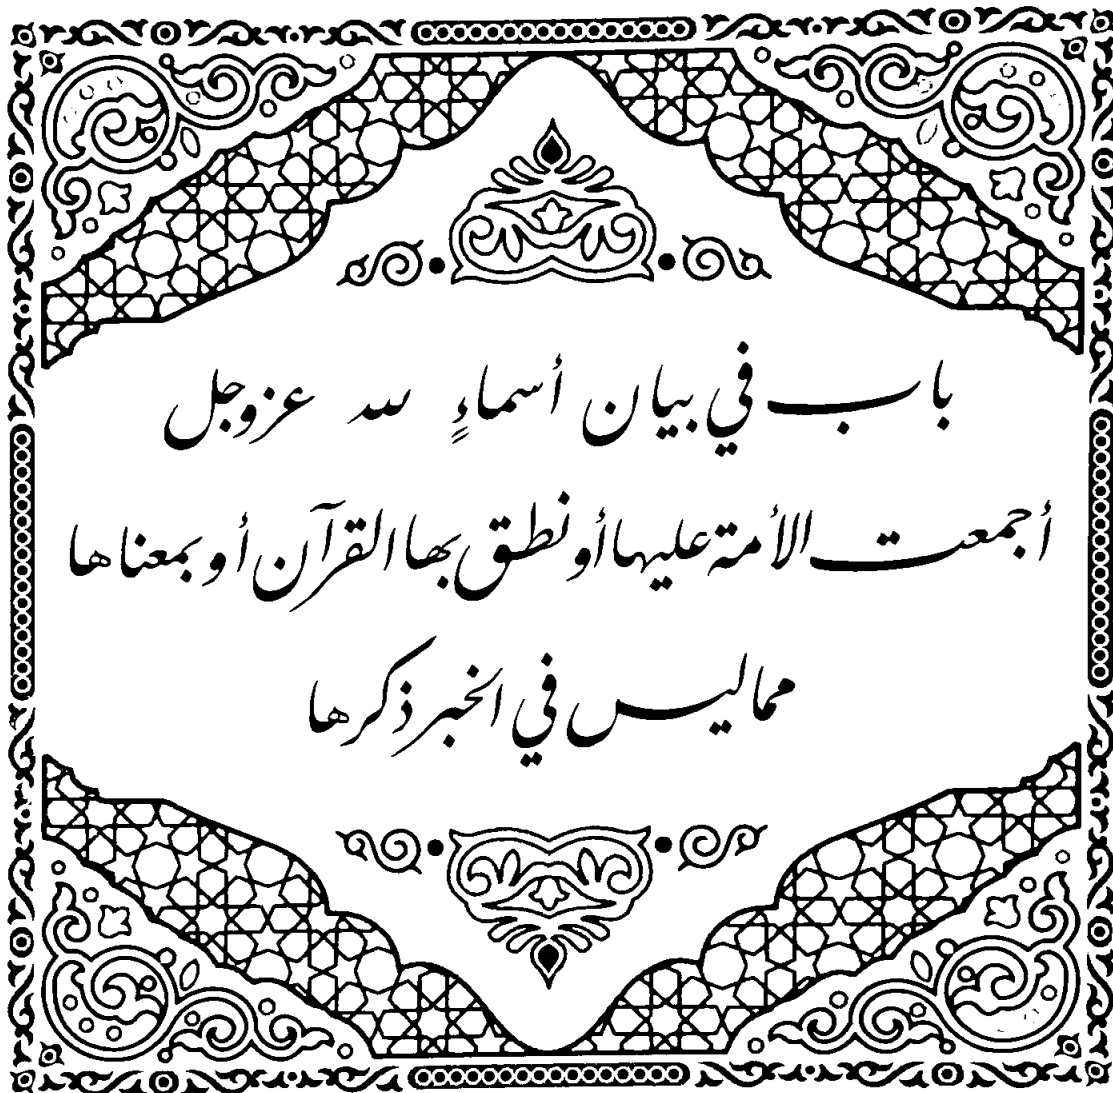 باب في بيان أسماءٍ لله عزوجل
أجمعت الأمة عليها أو نطق بها القرآن أو بمعناها
مما ليس في الخبر ذكرها